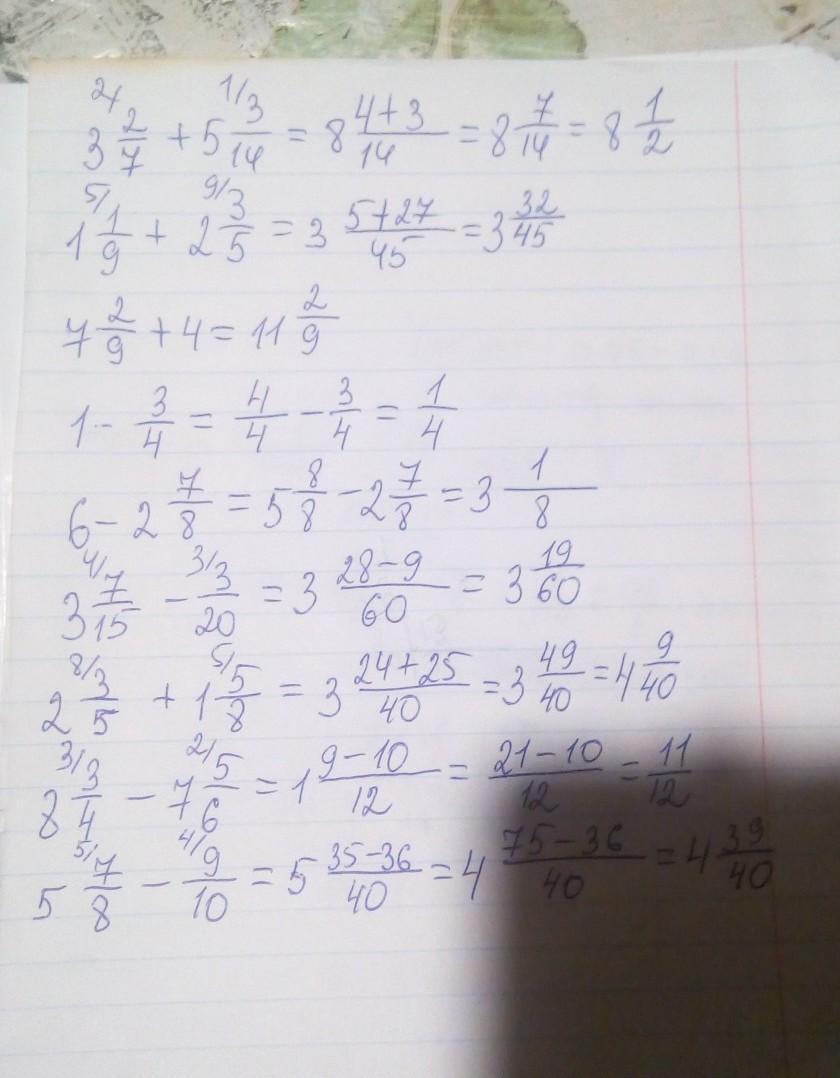 3 2/ 2/7 + 5 1/ 3/14 = 8 (4+3)/14 = 8 7/14 = 8 1/2
1 5/ 1/9 + 2 9/ 3/5 = 3 (5+27)/45 = 3 32/45
7 2/9 + 4 = 11 2/9
1 - 3/4 = 4/4 - 3/4 = 1/4
6 - 2 7/8 = 5 8/8 - 2 7/8 = 3 1/8
3 4/ 7/15 - 3/ 3/20 = 3 (28-9)/60 = 3 19/60
2 8/ 3/5 + 1 5/ 5/8 = 3 (24+25)/40 = 3 49/40 = 4 9/40
8 3/ 3/4 - 7 2/ 5/6 = 1 (9-10)/12 = (21-10)/12 = 11/12
5 5/ 7/8 - 4/ 9/10 = 5 (35-36)/40 = 4 (75-36)/40 = 4 39/40